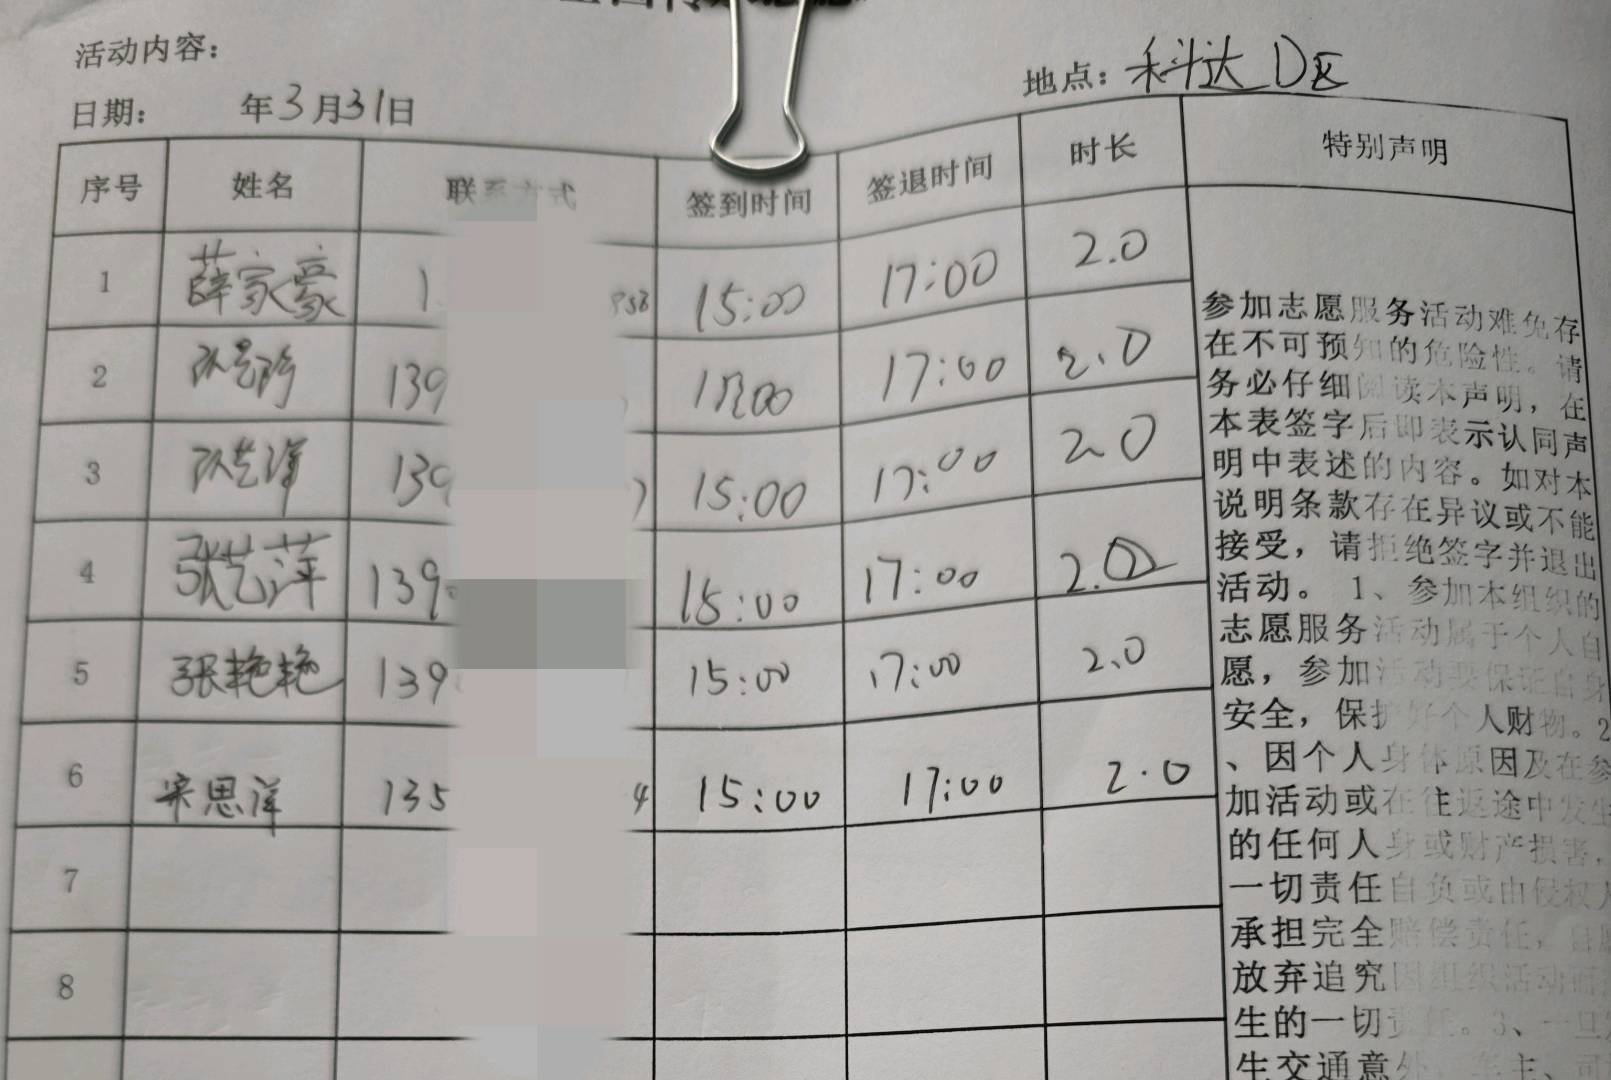 活动内容：
地点：科达D区
日期： 年3月31日
序号 姓名 联系方式 签到时间 签退时间 时长 特别声明
1 薛家豪 1 858 15:00 17:00 2.0
2 139 15:00 17:00 2.0
3 139 15:00 17:00 2.0
4 张艺萍 139 15:00 17:00 2.0
5 张艳艳 139 15:00 17:00 2.0
6 宋思洋 135 4 15:00 17:00 2.0
7
8
参加志愿服务活动难免存
在不可预知的危险性。请
务必仔细阅读本声明，在
本表签字后即表示认同声
明中表述的内容。如对本
说明条款存在异议或不能
接受，请拒绝签字并退出
活动。 1、参加本组织的
志愿服务活动属于个人自
愿，参加活动要保证自身
安全，保护好个人财物。2
、因个人身体原因及在参
加活动或在往返途中发生
的任何人身或财产损害，
一切责任自负或由侵权人
承担完全赔偿责任，自愿
放弃追究因组织活动而
生的一切责任。3、一旦
生交通意外，车主、司